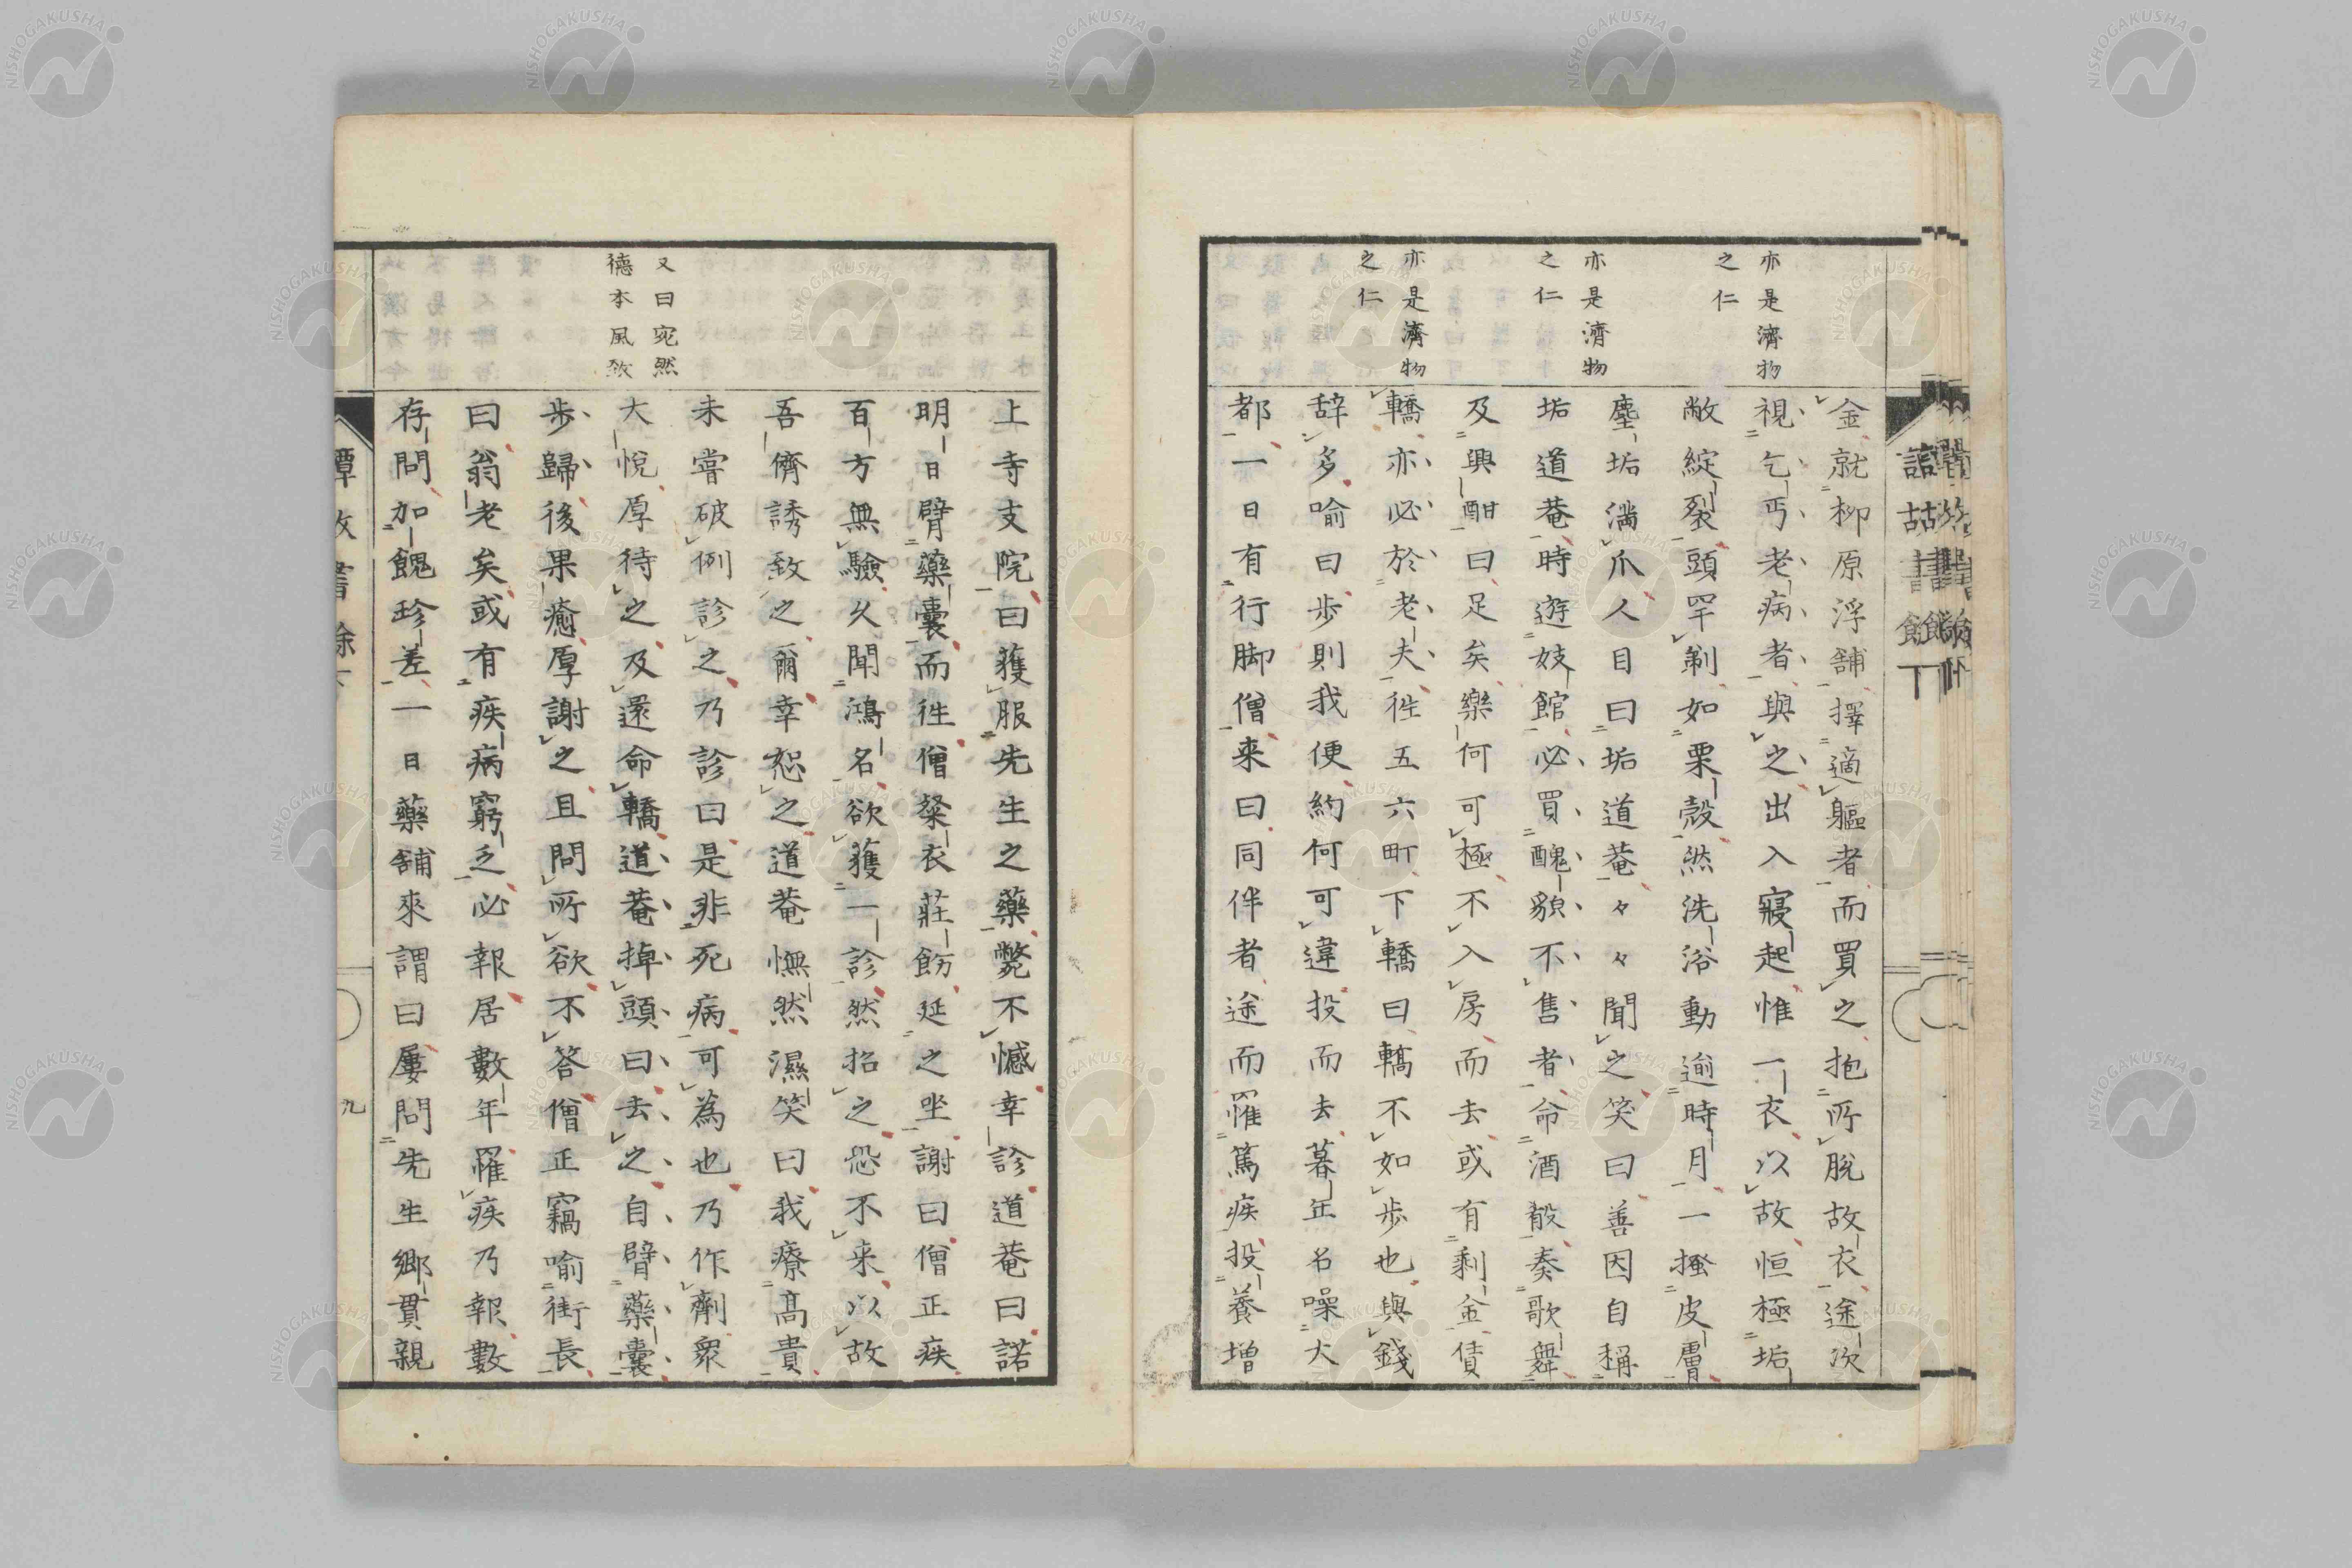 亦是濟物
之仁
亦是濟物
之仁
亦是濟物
之仁
金就柳原浮舗擇適軀者而買之抱所脫故衣途次
視乞丐老病者與之出入寢起惟一衣以故恒極垢
敝綻裂頭罕剃如栗殼然洗浴動逾時月一搔皮膚
塵垢滿爪人目曰垢道菴々々聞之笑曰善因自稱
垢道菴時遊妓館必買醜貌不售者命酒殽奏歌舞
及興酣曰足矣樂何可極不入房而去或有剩金債
轎亦必於老夫徃五六町下轎曰轎不如步也與錢
辞多喻曰步則我便約何可違投而去暮年名噪大
都一日有行脚僧来曰同伴者途而罹篤疾投養增
又曰宛然
德本風致
上寺支院曰獲服先生之藥斃不憾幸診道菴曰諾
明日臂藥囊而徃僧粲衣莊飭延之坐謝曰僧正疾
百方無驗久聞鴻名欲獲一診然招之恐不来以故
吾儕誘致之爾幸恕之道菴憮然濕笑曰我療高貴
未嘗破例診之乃診曰是非死病可為也乃作劑眾
大悅厚待之及還命轎道菴掉頭曰去之自臂藥囊
步歸後果癒厚謝之且問所欲不答僧正竊喻街長
曰翁老矣或有疾病窮乏必報居數年罹疾乃報數
存問加餽珍差一日藥舗來謂曰屢問先生鄉貫親
九
NISHOGAKUSHA